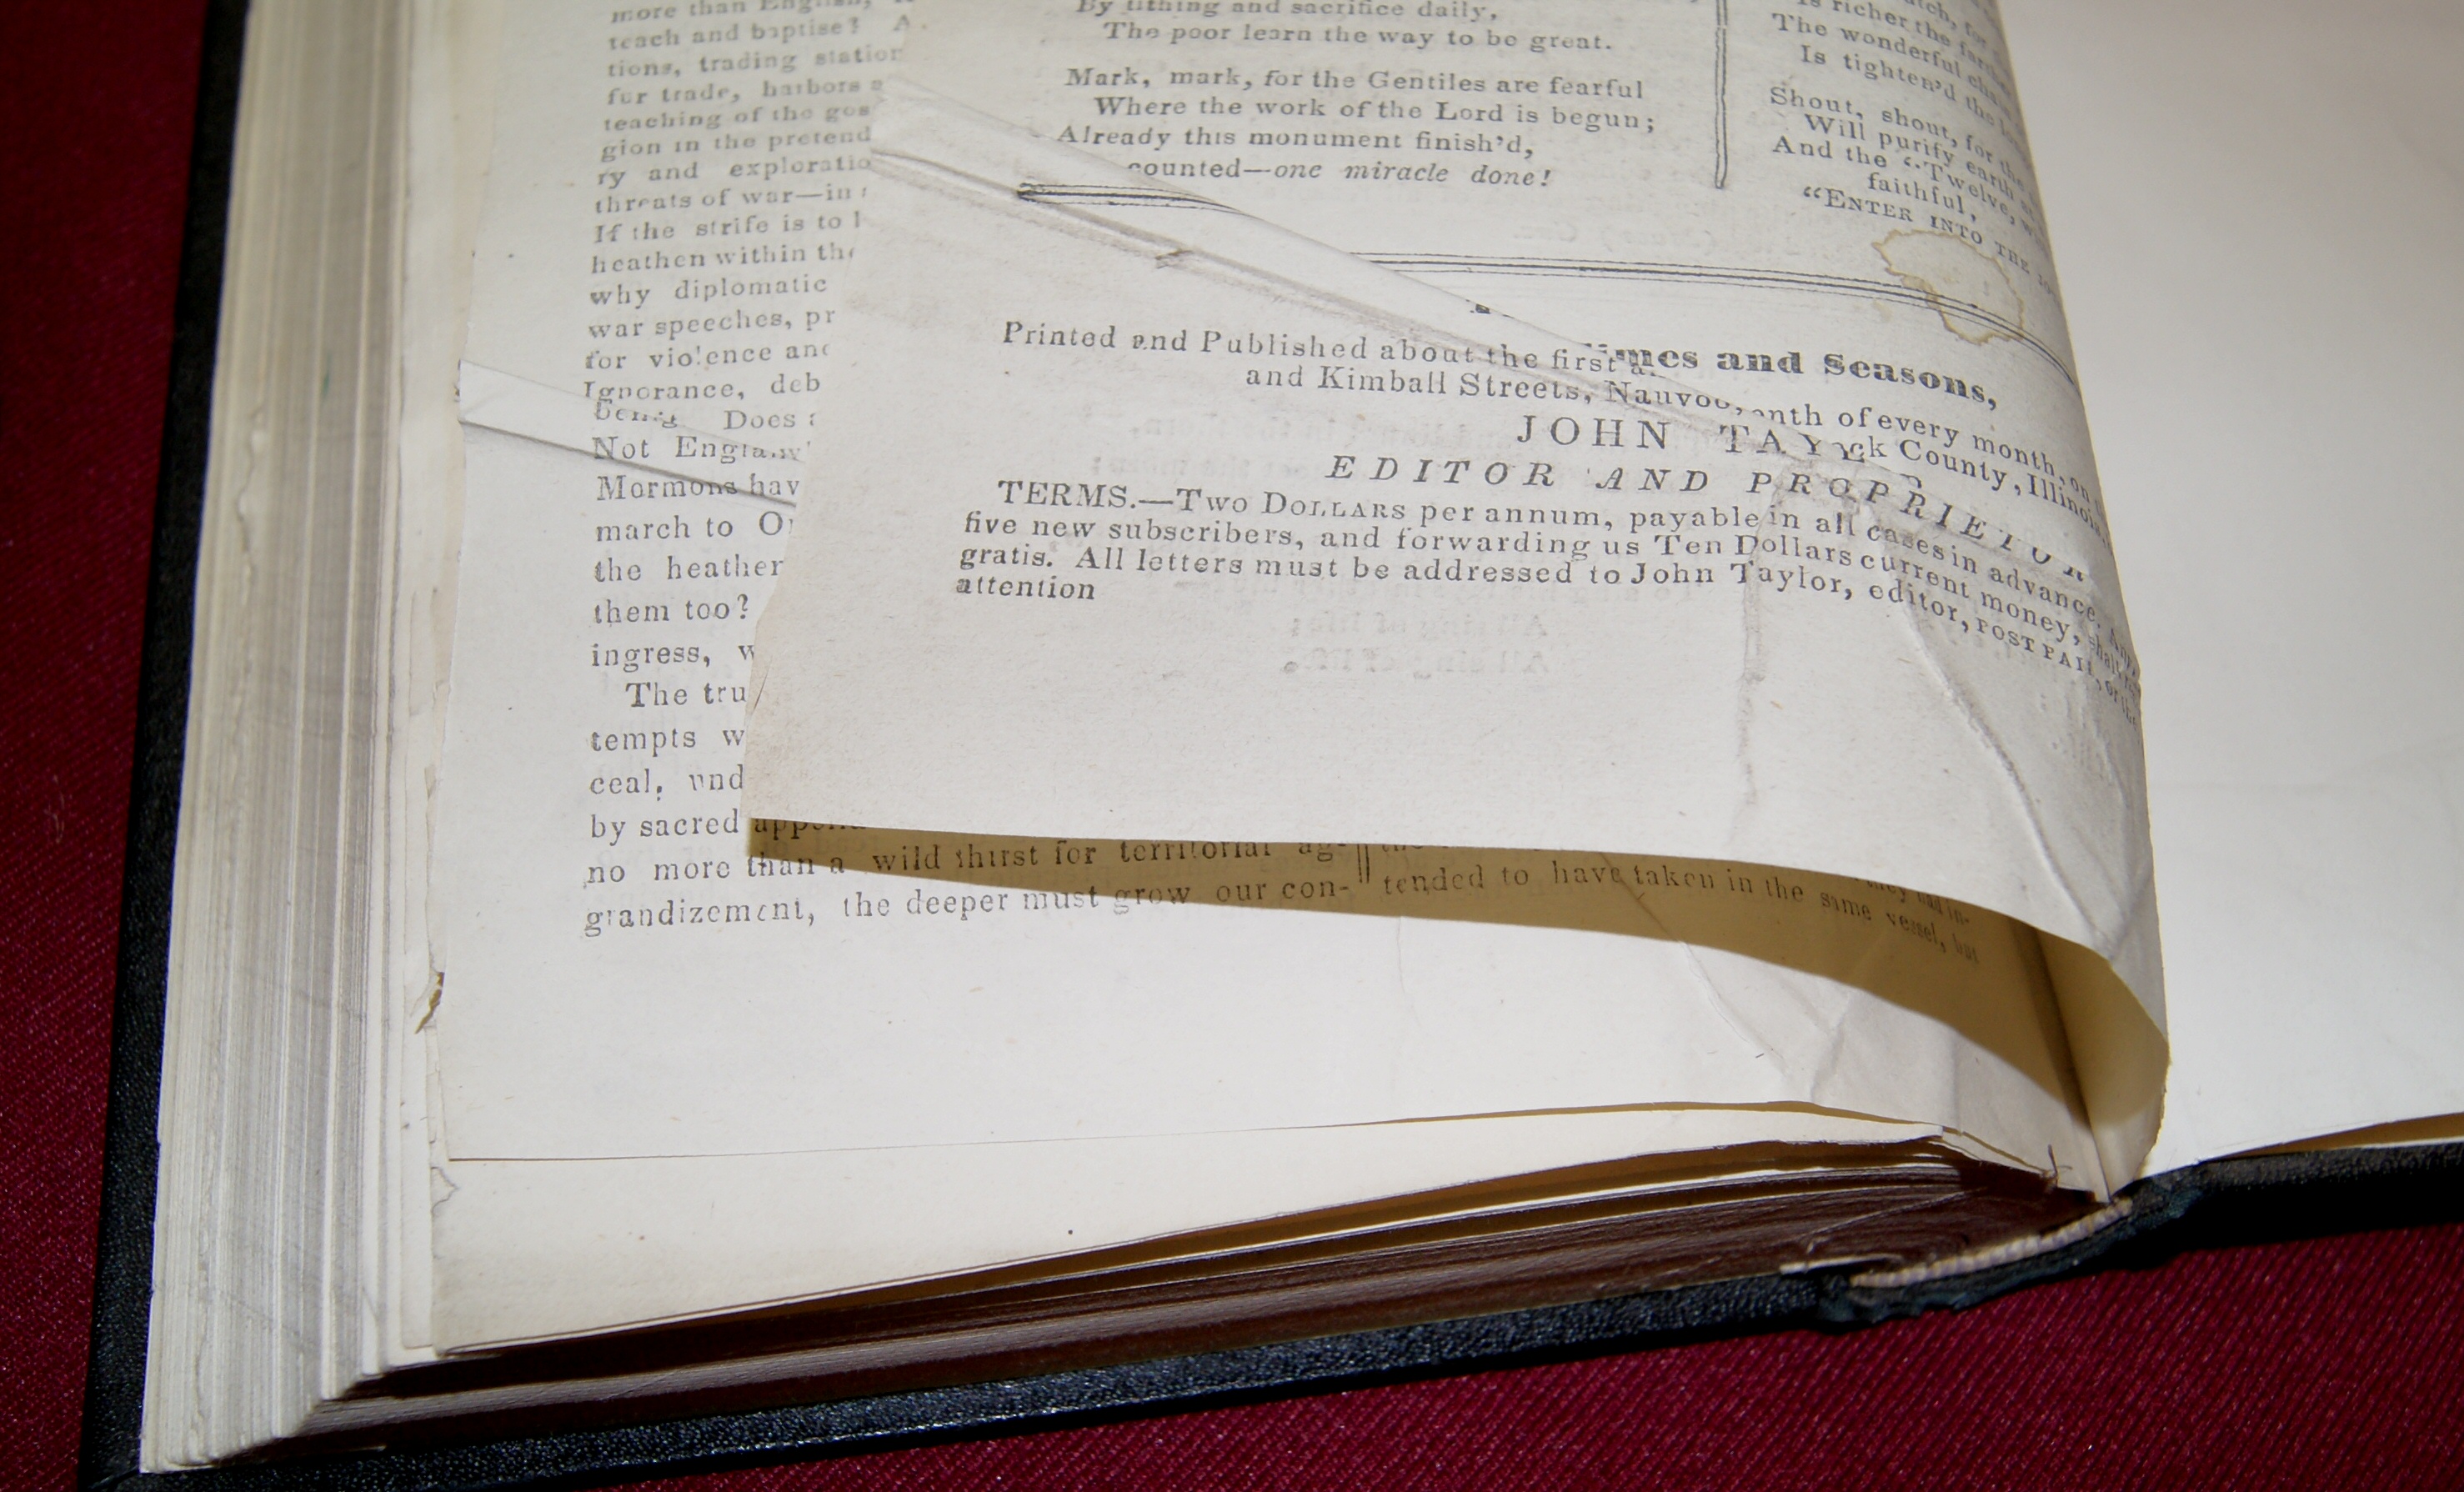 more than English,
teach and baptise? A
tions, trading station
for trade, harbors a
teaching of the gos
gion in the pretend
ry and exploratio
threats of war—in
If the strife is to
heathen within the
why diplomatic
war speeches, pr
for violence and
Ignorance, deb
being. Does
Not England
Mormons hav
march to O
the heathen
them too?
ingress, w
The tru
tempts w
ceal, und
by sacred
no more than a wild thirst for territorial ag-
grandizement, the deeper must grow our con-
tended to have taken in the same vessel, but
By tithing and sacrifice daily,
The poor learn the way to be great.
Mark, mark, for the Gentiles are fearful
Where the work of the Lord is begun;
Already this monument finish'd,
counted—one miracle done!
is richer the
The wonderful
Is tighten'd the
Shout, shout, for the
Will purify earth
And the "Twelve,
faithful,
"ENTER INTO THE
Times and Seasons,
Printed and Published about the first a
nth of every month, on
and Kimball Streets, Nauvoo,
ck County, Illinois,
JOHN TAY
EDITOR AND PROPRIETOR
TERMS.—Two Dollars per annum, payable in all cases in advance.
five new subscribers, and forwarding us Ten Dollars current money, shall
gratis. All letters must be addressed to John Taylor, editor, POST PAID, or
attention